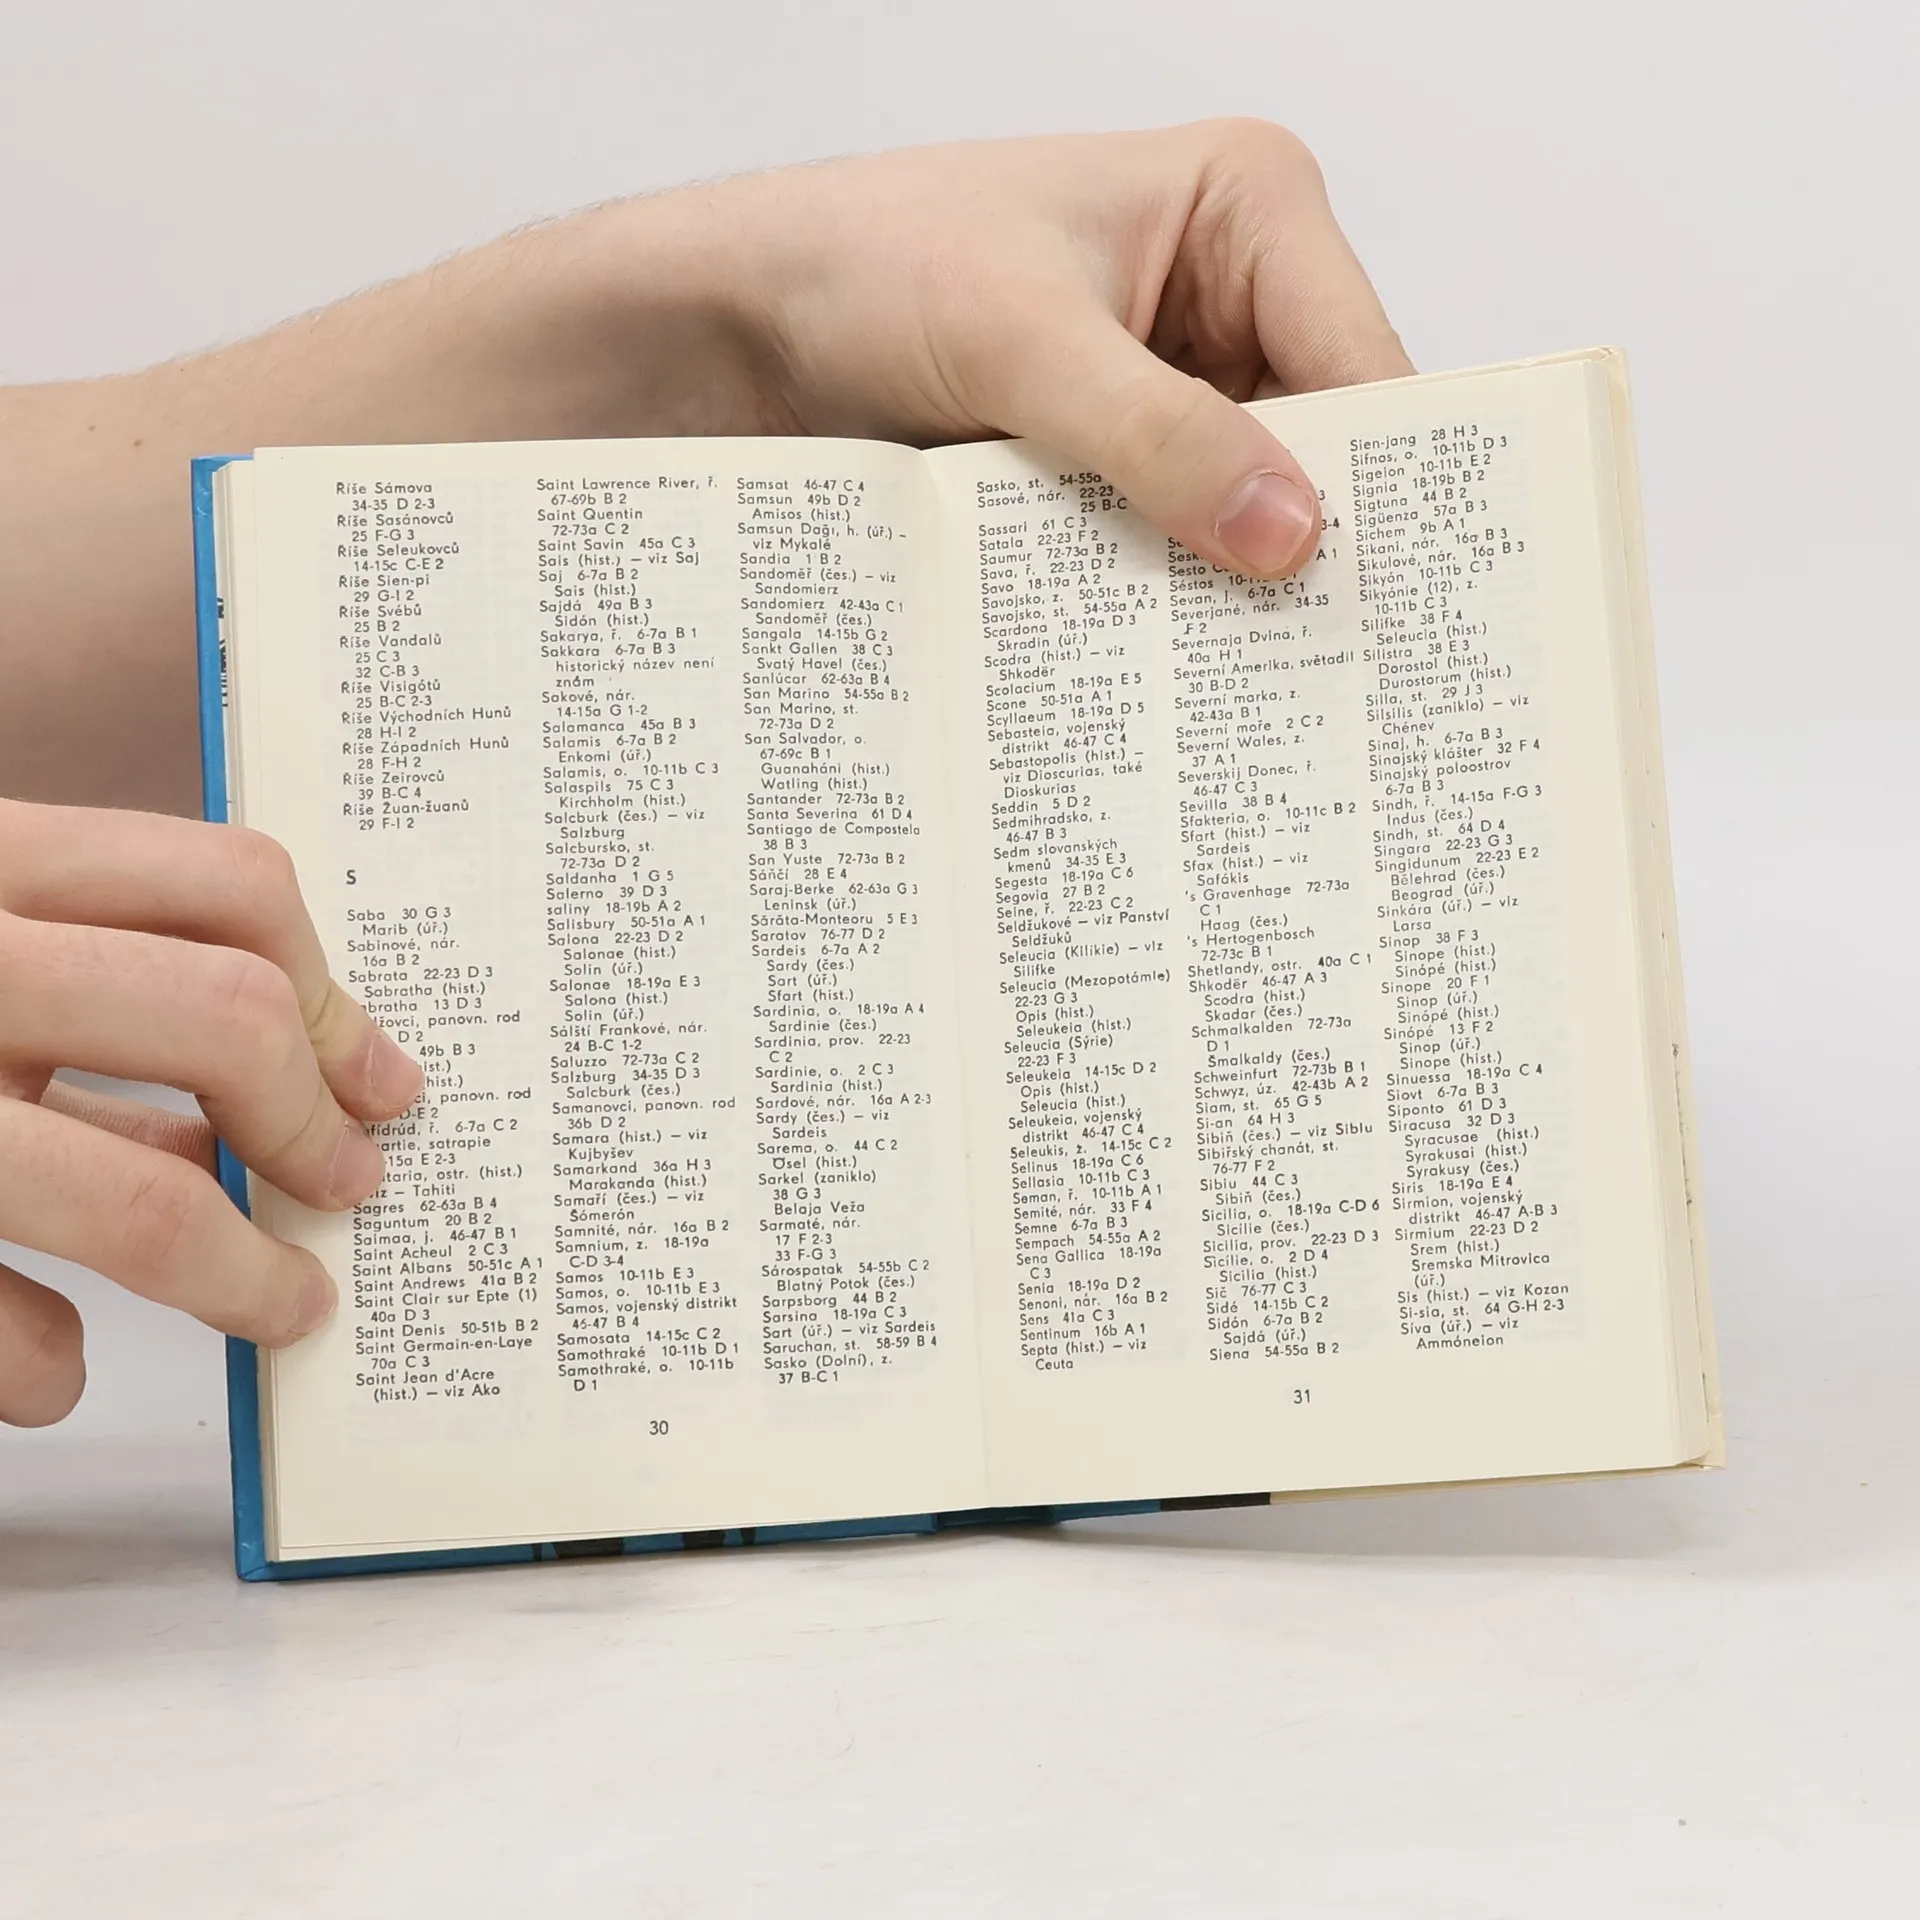 Říše Sámova
34-35 D 2-3
Říše Sasánovců
25 F-G 3
Říše Seleukovců
14-15c C-E 2
Říše Sien-pi
29 G-I 2
Říše Svébů
25 B 2
Říše Vandalů
25 C 3
32 C-B 3
Říše Visigótů
25 B-C 2-3
Říše Východních Hunů
28 H-I 2
Říše Západních Hunů
28 F-H 2
Říše Zeirovců
39 B-C 4
Říše Žuan-žuanů
29 F-I 2
S
Saba 30 G 3
Marib (úř.)
Sabinové, nár.
16a B 2
Sabrata 22-23 D 3
Sabratha (hist.)
abratha 13 D 3
panovn. rod
D 2
49b B 3
panovn. rod
D-E 2
6-7a C 2
satrapie
E 2-3
ostr. (hist.)
viz – Tahiti
Sagres 62-63a B 4
Saguntum 20 B 2
Saimaa, j. 46-47 B 1
Saint Acheul 2 C 3
Saint Albans 50-51c A 1
Saint Andrews 41a B 2
Saint Clair sur Epte (1)
40a D 3
Saint Denis 50-51b B 2
Saint Germain-en-Laye
70a C 3
Saint Jean d'Acre
(hist.) – viz Ako
Saint Lawrence River, ř.
67-69b B 2
Saint Quentin
72-73a C 2
Saint Savin 45a C 3
Sais (hist.) – viz Saj
Saj 6-7a B 2
Sais (hist.)
Sajdá 49a B 3
Sidón (hist.)
Sakarya, ř. 6-7a B 1
Sakkara 6-7a B 3
historický název není
znám
Sakové, nár.
14-15a G 1-2
Salamanca 45a B 3
Salamis 6-7a B 2
Enkomi (úř.)
Salamis, o. 10-11b C 3
Salaspils 75 C 3
Kirchholm (hist.)
Salcburk (čes.) – viz
Salzburg
Salcbursko, st.
72-73a D 2
Saldanha 1 G 5
Salerno 39 D 3
saliny 18-19b A 2
Salisbury 50-51a A 1
Salona 22-23 D 2
Salonae (hist.)
Solin (úř.)
Salonae 18-19a E 3
Salona (hist.)
Solin (úř.)
Sálští Frankové, nár.
24 B-C 1-2
Saluzzo 72-73a C 2
Salzburg 34-35 D 3
Salcburk (čes.)
Samanovci, panovn. rod
36b D 2
Samara (hist.) – viz
Kujbyšev
Samarkand 36a H 3
Marakanda (hist.)
Samaří (čes.) – viz
Šómerón
Samnité, nár. 16a B 2
Samnium, z. 18-19a
C-D 3-4
Samos 10-11b E 3
Samos, o. 10-11b E 3
Samos, vojenský distrikt
46-47 B 4
Samosata 14-15c C 2
Samothraké 10-11b D 1
Samothraké, o. 10-11b
D 1
Samsat 46-47 C 4
Samsun 49b D 2
Amisos (hist.)
Samsun Daği, h. (úř.) –
viz Mykalé
Sandia 1 B 2
Sandoměř (čes.) – viz
Sandomierz
Sandomierz 42-43a C 1
Sandoměř (čes.)
Sangala 14-15b G 2
Sankt Gallen 38 C 3
Svatý Havel (čes.)
Sanlúcar 62-63a B 4
San Marino 54-55a B 2
San Marino, st.
72-73a D 2
San Salvador, o.
67-69c B 1
Guanaháni (hist.)
Watling (hist.)
Santander 72-73a B 2
Santa Severina 61 D 4
Santiago de Compostela
38 B 3
San Yuste 72-73a B 2
Sáňčí 28 E 4
Saraj-Berke 62-63a G 3
Leninsk (úř.)
Sărăta-Monteoru 5 E 3
Saratov 76-77 D 2
Sardeis 6-7a A 2
Sardy (čes.)
Sart (úř.)
Sfart (hist.)
Sardinia, o. 18-19a A 4
Sardinie (čes.)
Sardinia, prov. 22-23
C 2
Sardinie, o. 2 C 3
Sardinia (hist.)
Sardové, nár. 16a A 2-3
Sardy (čes.) – viz
Sardeis
Sarema, o. 44 C 2
Ösel (hist.)
Sarkel (zaniklo)
38 G 3
Belaja Veža
Sarmaté, nár.
17 F 2-3
33 F-G 3
Sárospatak 54-55b C 2
Blatný Potok (čes.)
Sarpsborg 44 B 2
Sarsina 18-19a C 3
Sart (úř.) – viz Sardeis
Saruchan, st. 58-59 B 4
Sasko (Dolní), z.
37 B-C 1
30
Sasko, st. 54-55a
Sasové, nár. 22-23
25 B-C
Sassari 61 C 3
Satala 22-23 F 2
Saumur 72-73a B 2
Sava, ř. 22-23 D 2
Savo 18-19a A 2
Savojsko, z. 50-51c B 2
Savojsko, st. 54-55a A 2
Scardona 18-19a D 3
Skradin (úř.)
Scodra (hist.) – viz
Shkodër
Scolacium 18-19a E 5
Scone 50-51a A 1
Scyllaeum 18-19a D 5
Sebasteia, vojenský
distrikt 46-47 C 4
Sebastopolis (hist.) –
viz Dioscurias, také
Dioskurias
Seddin 5 D 2
Sedmihradsko, z.
46-47 B 3
Sedm slovanských
kmenů 34-35 E 3
Segesta 18-19a C 6
Segovia 27 B 2
Seine, ř. 22-23 C 2
Seldžukové – viz Panství
Seldžuků
Seleucia (Kilikie) – viz
Silifke
Seleucia (Mezopotámie)
22-23 G 3
Opis (hist.)
Seleukeia (hist.)
Seleucia (Sýrie)
22-23 F 3
Seleukeia 14-15c D 2
Opis (hist.)
Seleucia (hist.)
Seleukeia, vojenský
distrikt 46-47 C 4
Seleukis, ž. 14-15c C 2
Selinus 18-19a C 6
Sellasia 10-11b C 3
Seman, ř. 10-11b A 1
Semité, nár. 33 F 4
Semne 6-7a B 3
Sempach 54-55a A 2
Sena Gallica 18-19a
C 3
Senia 18-19a D 2
Senoni, nár. 16a B 2
Sens 41a C 3
Sentinum 16b A 1
Septa (hist.) – viz
Ceuta
3
3-4
Sesto A 1
Séstos
Sevan, j. 6-7a C 1
Severjané, nár. 34-35
F 2
Severnaja Dvina, ř.
40a H 1
Severní Amerika, světadíl
30 B-D 2
Severní marka, z.
42-43a B 1
Severní moře 2 C 2
Severní Wales, z.
37 A 1
Severskij Donec, ř.
46-47 C 3
Sevilla 38 B 4
Sfakteria, o. 10-11c B 2
Sfart (hist.) – viz
Sardeis
Sfax (hist.) – viz
Safákis
's Gravenhage 72-73a
C 1
Haag (čes.)
's Hertogenbosch
72-73c B 1
Shetlandy, ostr. 40a C 1
Shkodër 46-47 A 3
Scodra (hist.)
Skadar (čes.)
Schmalkalden 72-73a
D 1
Šmalkaldy (čes.)
Schweinfurt 72-73b B 1
Schwyz, úz. 42-43b A 2
Siam, st. 65 G 5
Si-an 64 H 3
Sibiň (čes.) – viz Sibiu
Sibiřský chanát, st.
76-77 F 2
Sibiu 44 C 3
Sibiň (čes.)
Sicilia, o. 18-19a C-D 6
Sicílie (čes.)
Sicilia, prov. 22-23 D 3
Sicílie, o. 2 D 4
Sicilia (hist.)
Sič 76-77 C 3
Sidé 14-15b C 2
Sidón 6-7a B 2
Sajdá (úř.)
Siena 54-55a B 2
Sien-jang 28 H 3
Sifnos, o. 10-11b D 3
Sigeion 10-11b E 2
Signia 18-19b B 2
Sigtuna 44 B 2
Sigüenza 57a B 3
Sichem 9b A 1
Sikani, nár. 16a B 3
Sikulové, nár. 16a B 3
Sikyón 10-11b C 3
Sikyónie (12), z.
10-11b C 3
Silifke 38 F 4
Seleucia (hist.)
Silistra 38 E 3
Dorostol (hist.)
Durostorum (hist.)
Silla, st. 29 J 3
Silsilis (zaniklo) – viz
Chénev
Sinaj, h. 6-7a B 3
Sinajský klášter 32 F 4
Sinajský poloostrov
6-7a B 3
Sindh, ř. 14-15a F-G 3
Indus (čes.)
Sindh, st. 64 D 4
Singara 22-23 G 3
Singidunum 22-23 E 2
Bělehrad (čes.)
Beograd (úř.)
Sinkára (úř.) – viz
Larsa
Sinop 38 F 3
Sinope (hist.)
Sinópé (hist.)
Sinope 20 F 1
Sinop (úř.)
Sinópé (hist.)
Sinópé 13 F 2
Sinop (úř.)
Sinope (hist.)
Sinuessa 18-19a C 4
Siovt 6-7a B 3
Siponto 61 D 3
Siracusa 32 D 3
Syracusae (hist.)
Syrakusai (hist.)
Syrakusy (čes.)
Siris 18-19a E 4
Sirmion, vojenský
distrikt 46-47 A-B 3
Sirmium 22-23 D 2
Srem (hist.)
Sremska Mitrovica
(úř.)
Sis (hist.) – viz Kozan
Si-sia, st. 64 G-H 2-3
Síva (úř.) – viz
Ammóneion
31